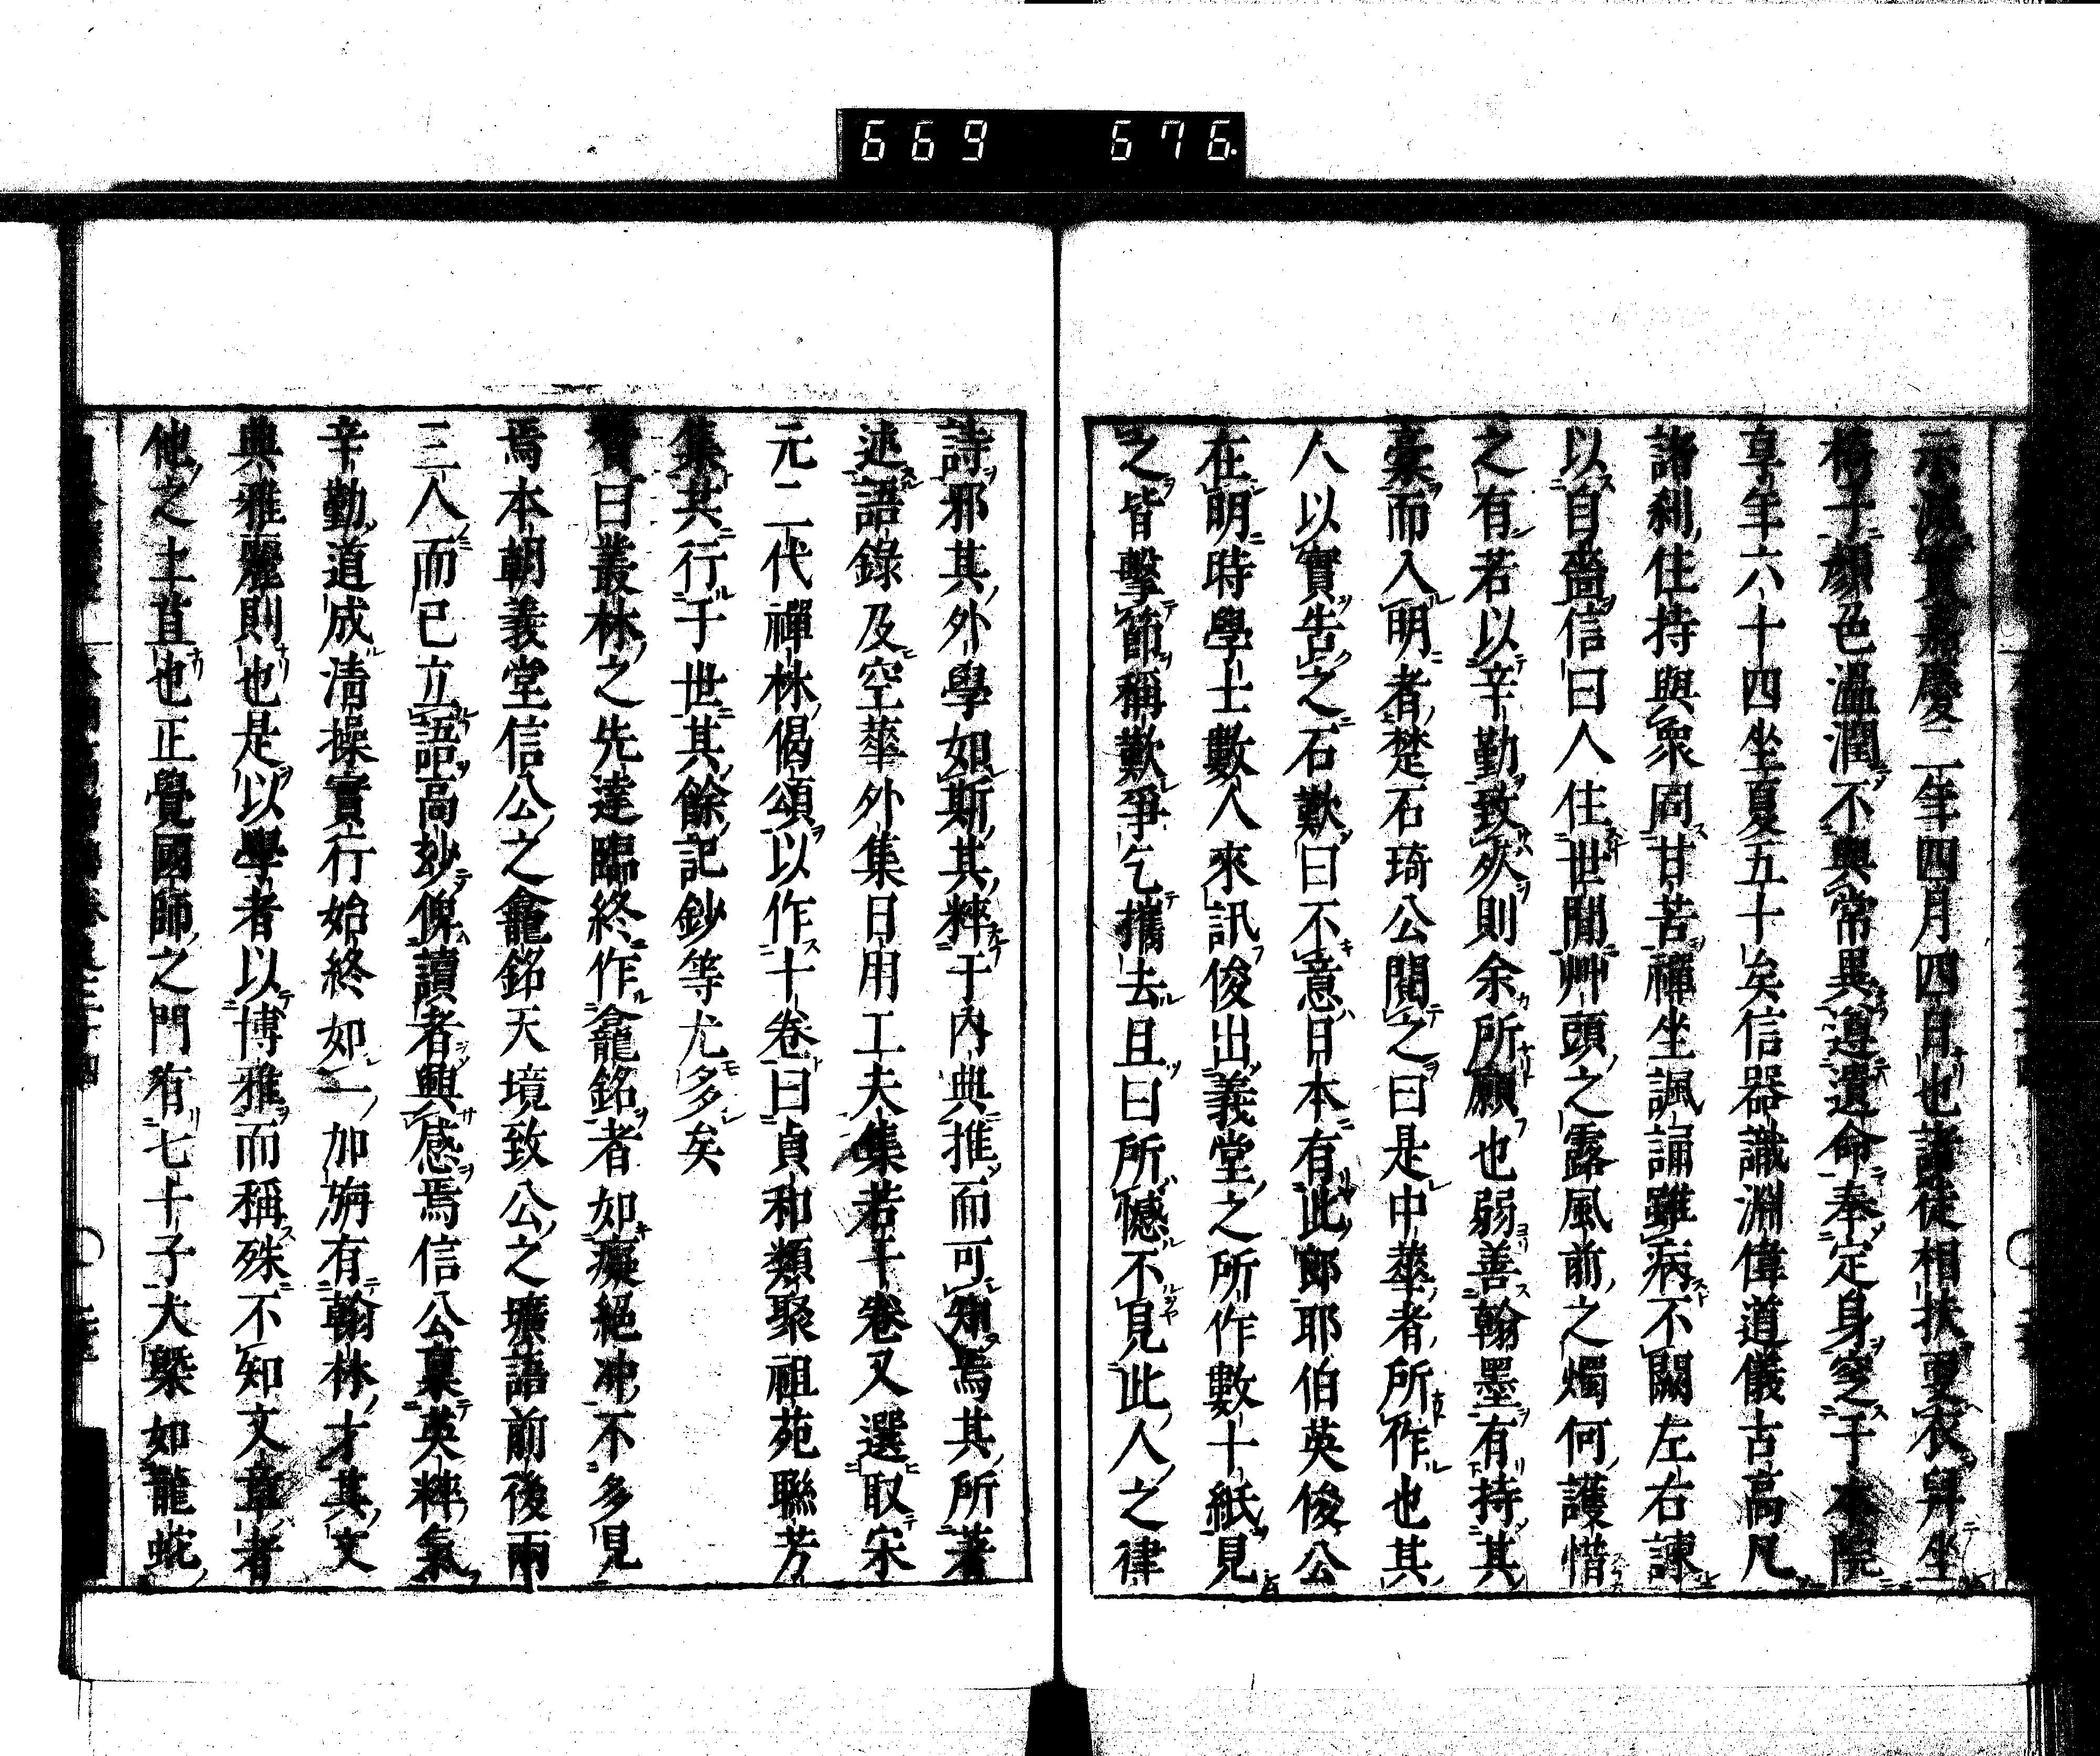 669 676.
示滅實嘉慶二年四月四日也諸徒相扶更衣舁坐
椅子顏色溫潤不與常異遵遺命奉定身窆于本院
享年六十四坐夏五十矣信器識淵偉道儀古高凡
諸刹住持與衆同甘苦禪坐諷誦雖病不闕左右諫
以自嗇信曰人住世間艸頭之露風前之燭何護惜
之有若以辛勤致夾則余所願也弱善翰墨有持其
藁而入明者楚石琦公閱之曰是中華者所作也其
人以實告之石歎曰不意日本有此郎耶伯英俊公
在明時學士數人來訊俊出義堂之所作數十紙見
之皆擊節稱歎爭乞攜去且曰所憾不見此人之律
詩邪其外學如斯其粹于內典推而可知焉其所著
述語錄及空華外集日用工夫集若干卷又選取宋
元二代禪林偈頌以作十卷曰貞和類聚祖苑聯芳
集其行于世其餘記鈔等尤多矣
贊曰叢林之先達臨終作龕銘者如癡絕冲不多見
焉本朝義堂信公之龕銘天境致公之壙語前後兩
三人而已立語高玅俾讀者興感焉信公稟英粹氣
辛勤道成淸操實行始終如一加旃有翰林才其文
典雅麗則也是以學者以博雅而稱殊不知文章者
他之土苴也正覺國師之門有七十子大槩如龍蛇